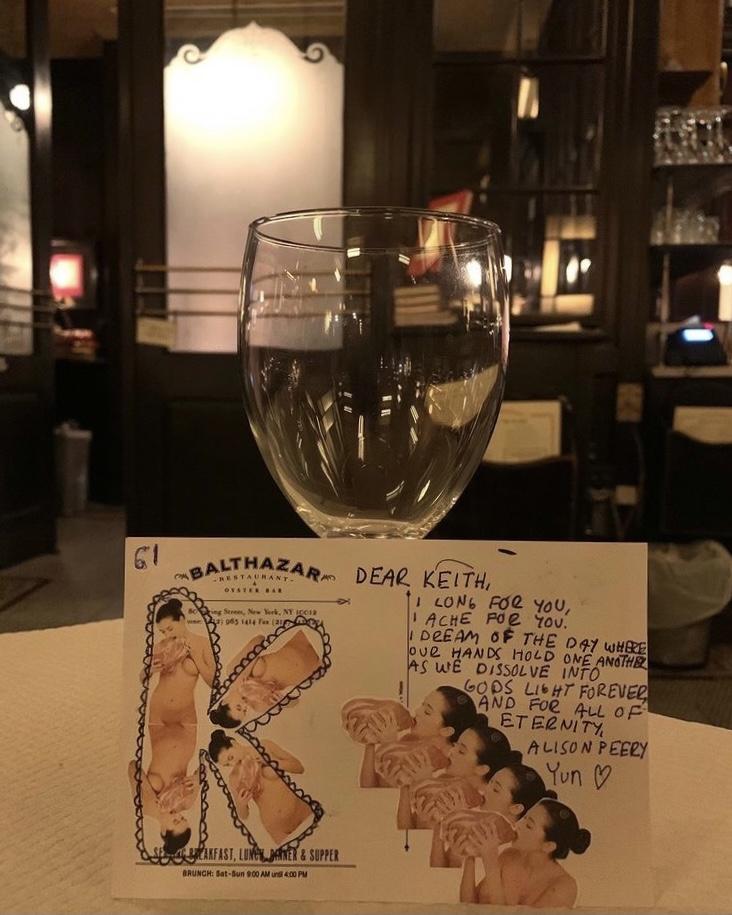 61
BALTHAZAR
-RESTAURANT-
&
OYSTER BAR
80 Spring Street, New York, NY 10012
965 1414 Fax
SERVING BREAKFAST, LUNCH, DINNER & SUPPER
BRUNCH: Sat-Sun 9:00 AM until 4:00 PM
DEAR KEITH,
I LONG FOR YOU,
I ACHE FOR YOU.
I DREAM OF THE DAY WHERE
OUR HANDS HOLD ONE ANOTHER
AS WE DISSOLVE INTO
GODS LIGHT FOREVER
AND FOR ALL OF
ETERNITY,
ALISON PEERY
Yun ♡